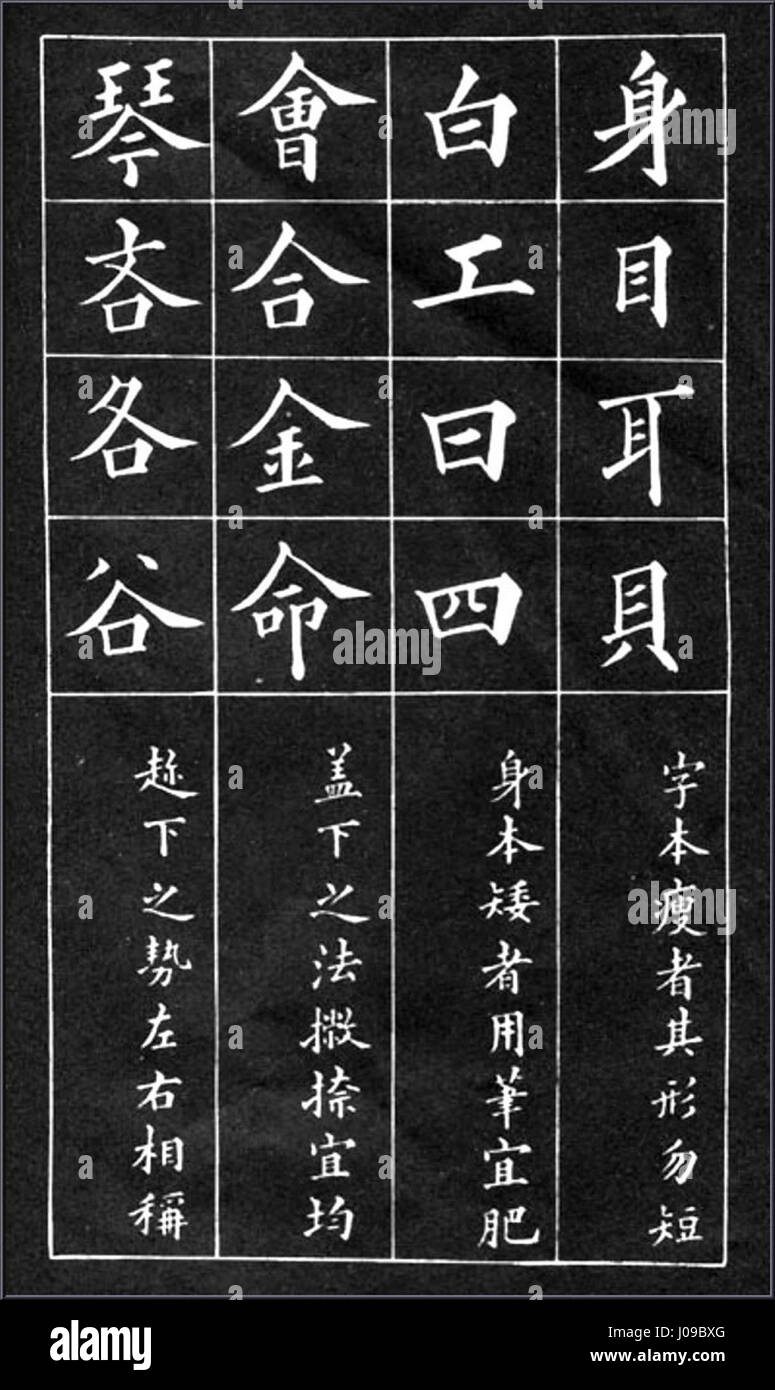 身目耳貝
字本瘦者其形勿短
白工曰四
身本矮者用筆宜肥
會合金命
盖下之法撇捺宜均
琴吝各谷
趂下之勢左右相稱
alamy
Image ID: J09BXG
www.alamy.com